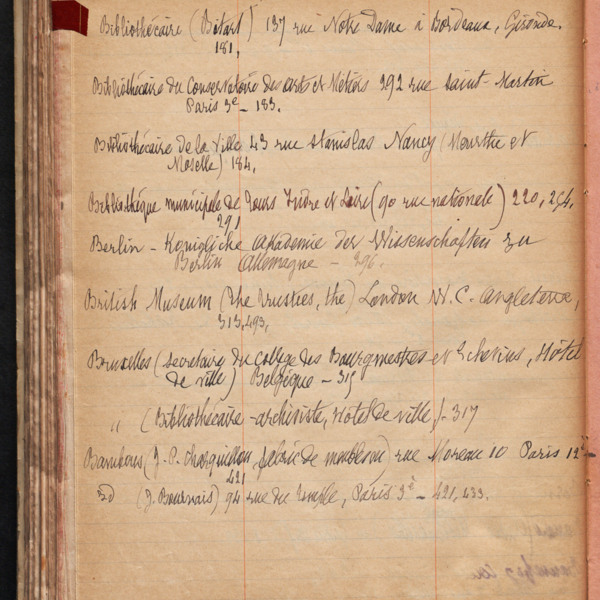 Bibliothécaire (Bitard) 137 rue Notre Dame à Bordeaux, Gironde.
181.
Bibliothécaire du Conservatoire des arts et Métiers 292 rue Saint-Martin
Paris 3e - 183.
Bibliothécaire de la Ville 43 rue Stanislas Nancy (Meurthe et
Moselle) 184.
Bibliothèque municipale de Tours Indre et Loire (90 rue nationale) 220, 254,
291
Berlin - Königliche Akademie der Wissenschaften zu
Berlin Allemagne - 296.
British Museum (The Trusties, the) London W.C. Angleterre,
313, 493,
Bruxelles (secrétaire du collège des Bourgmestres et Echevins, Hôtel
de ville) Belgique - 315
" (Bibliothécaire-archiviste, Hotel de ville) - 317
Bambous (J. P. fabric de meubles) rue Moreau 10 Paris 12e -
421
(J. Bournais) 94 rue du Temple, Paris 3e - 421, 433.